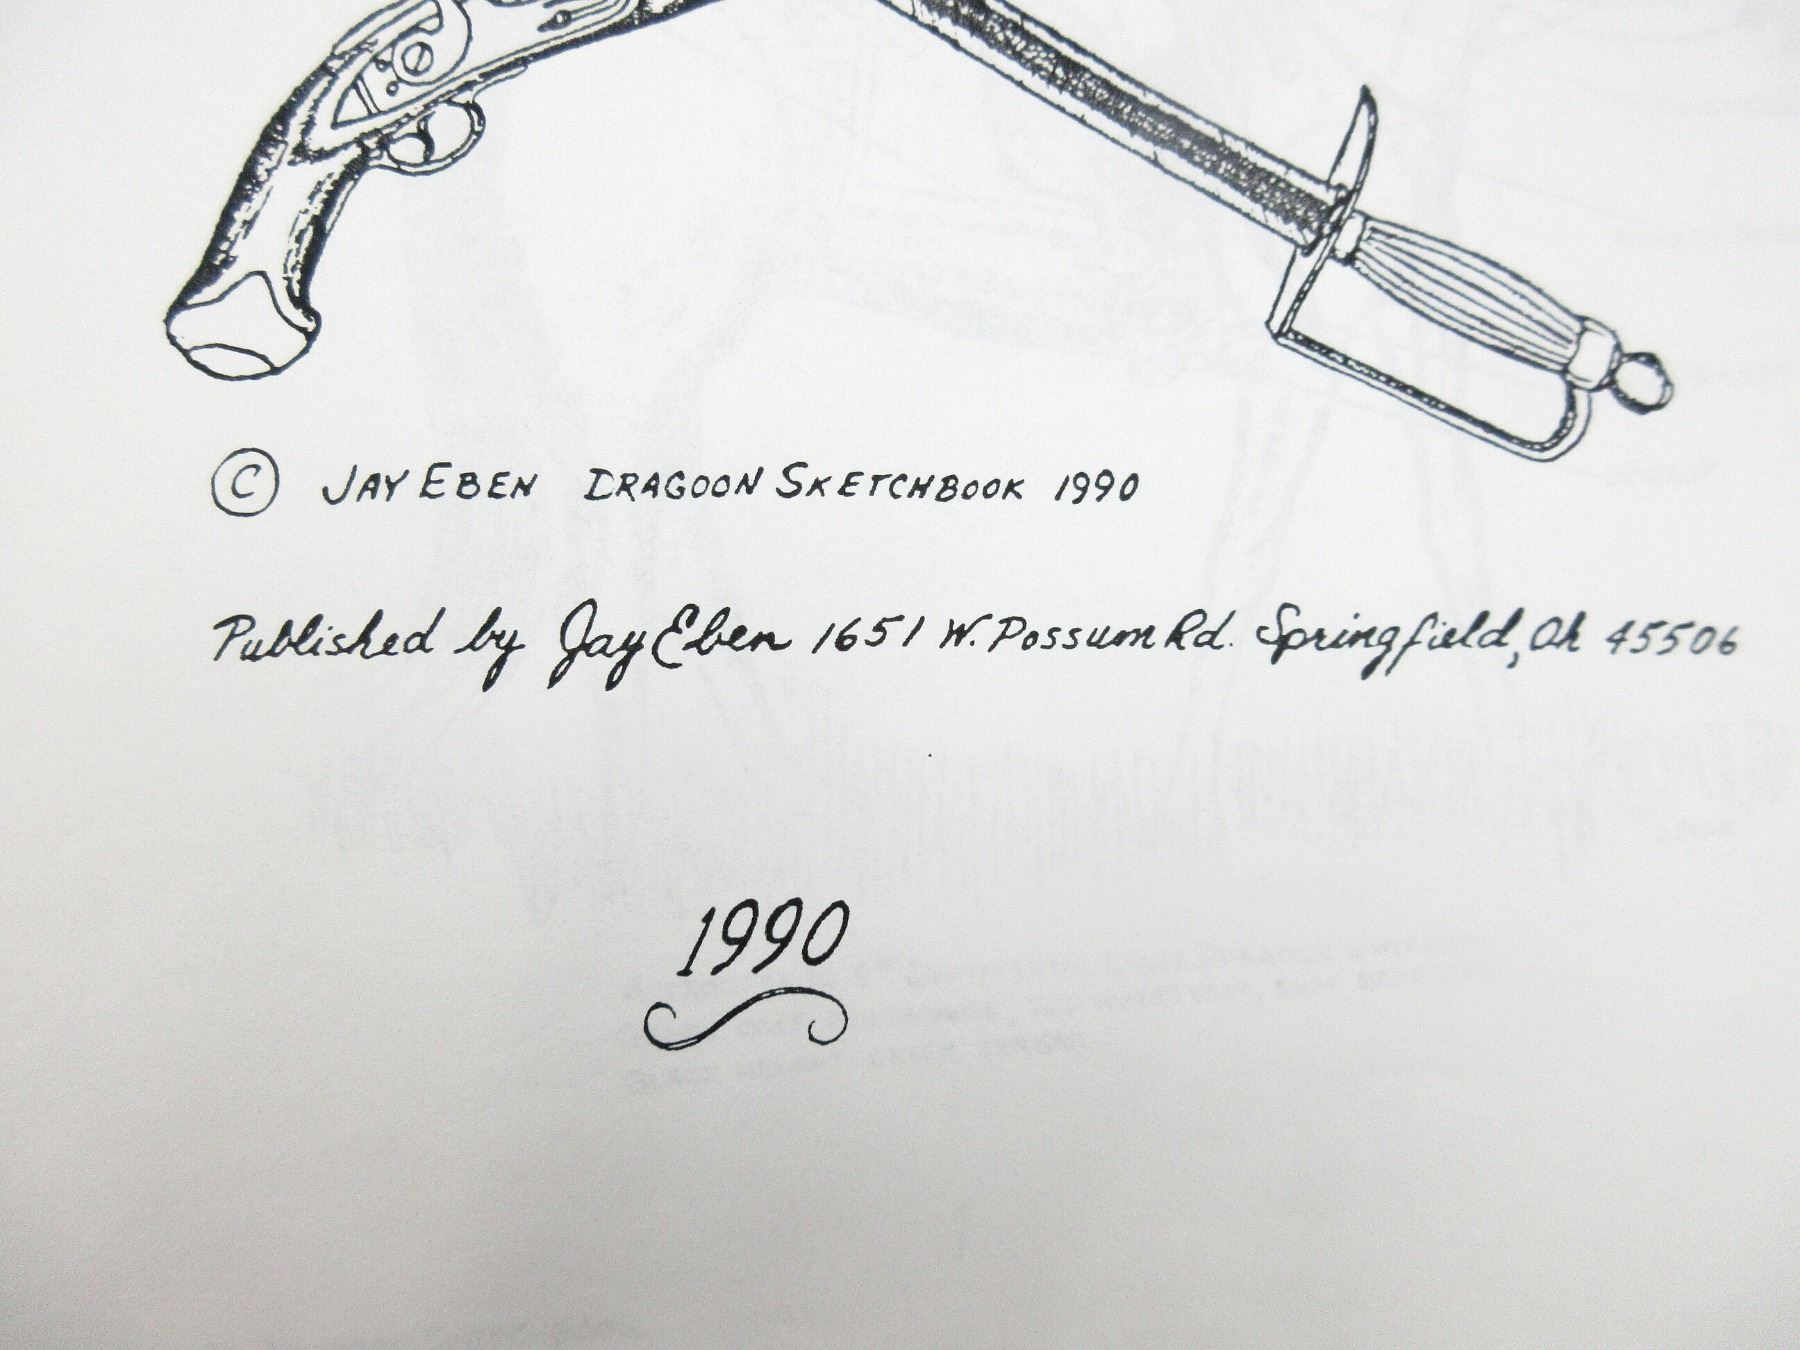 © JAY EBEN DRAGOON SKETCHBOOK 1990
Published by Jay Eben 1651 W. Possum Rd. Springfield, Oh 45506
1990